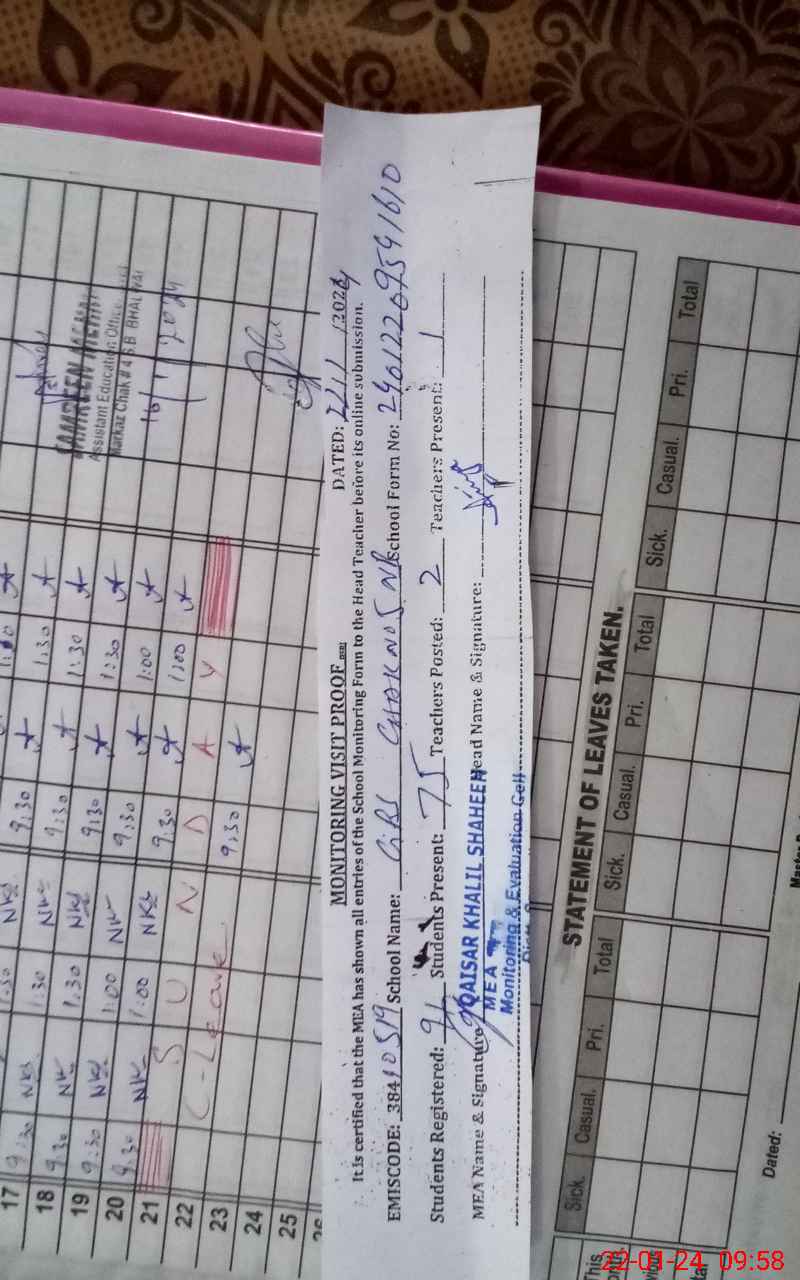 SAMREEN MEMN
Assistant Education Office
Markaz Chak # 4 S.B BHALWAL
16/1/2024
17 9:30 NK 1:30 NK 9:30 1:30
18 9:30 NK 1:30 NK 9:30 1:30
19 9:30 NK 1:30 NK 9:30 1:30
20 9:30 NK 1:00 NK 9:30 1:30
21 NK 1:00 NK 9:30 1:00
22 S U N 9:30 1:00
23 C-Leave D A Y
24 9:30
25
26
MONITORING VISIT PROOF DATED: /2024
It is certified that the MEA has shown all entries of the School Monitoring Form to the Head Teacher before its online submission.
EMISCODE: 38410519 School Name: GPS CHAK NO 5 NB School Form No:
Students Registered: Students Present: 75 Teachers Posted: 2 Teachers Present: 1
MEA Name & Signature Head Name & Signature:
QAISAR KHALIL SHAHEEN
MEA
Monitoring & Evaluation Cell
STATEMENT OF LEAVES TAKEN.
Sick. Casual. Pri. Total Sick. Casual. Pri. Total Sick. Casual. Pri. Total
This
Dated:
22-01-24 09:58